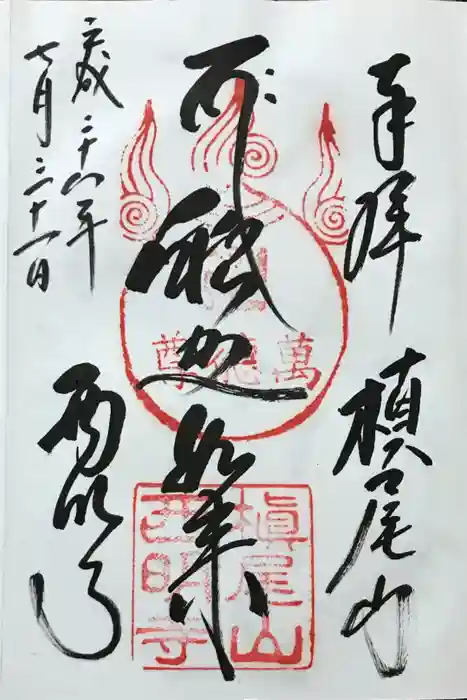 奉拝
槇尾山
釈迦如来
平成二十八年
七月三十一日
西明寺
萬德尊
槇尾山
西明寺